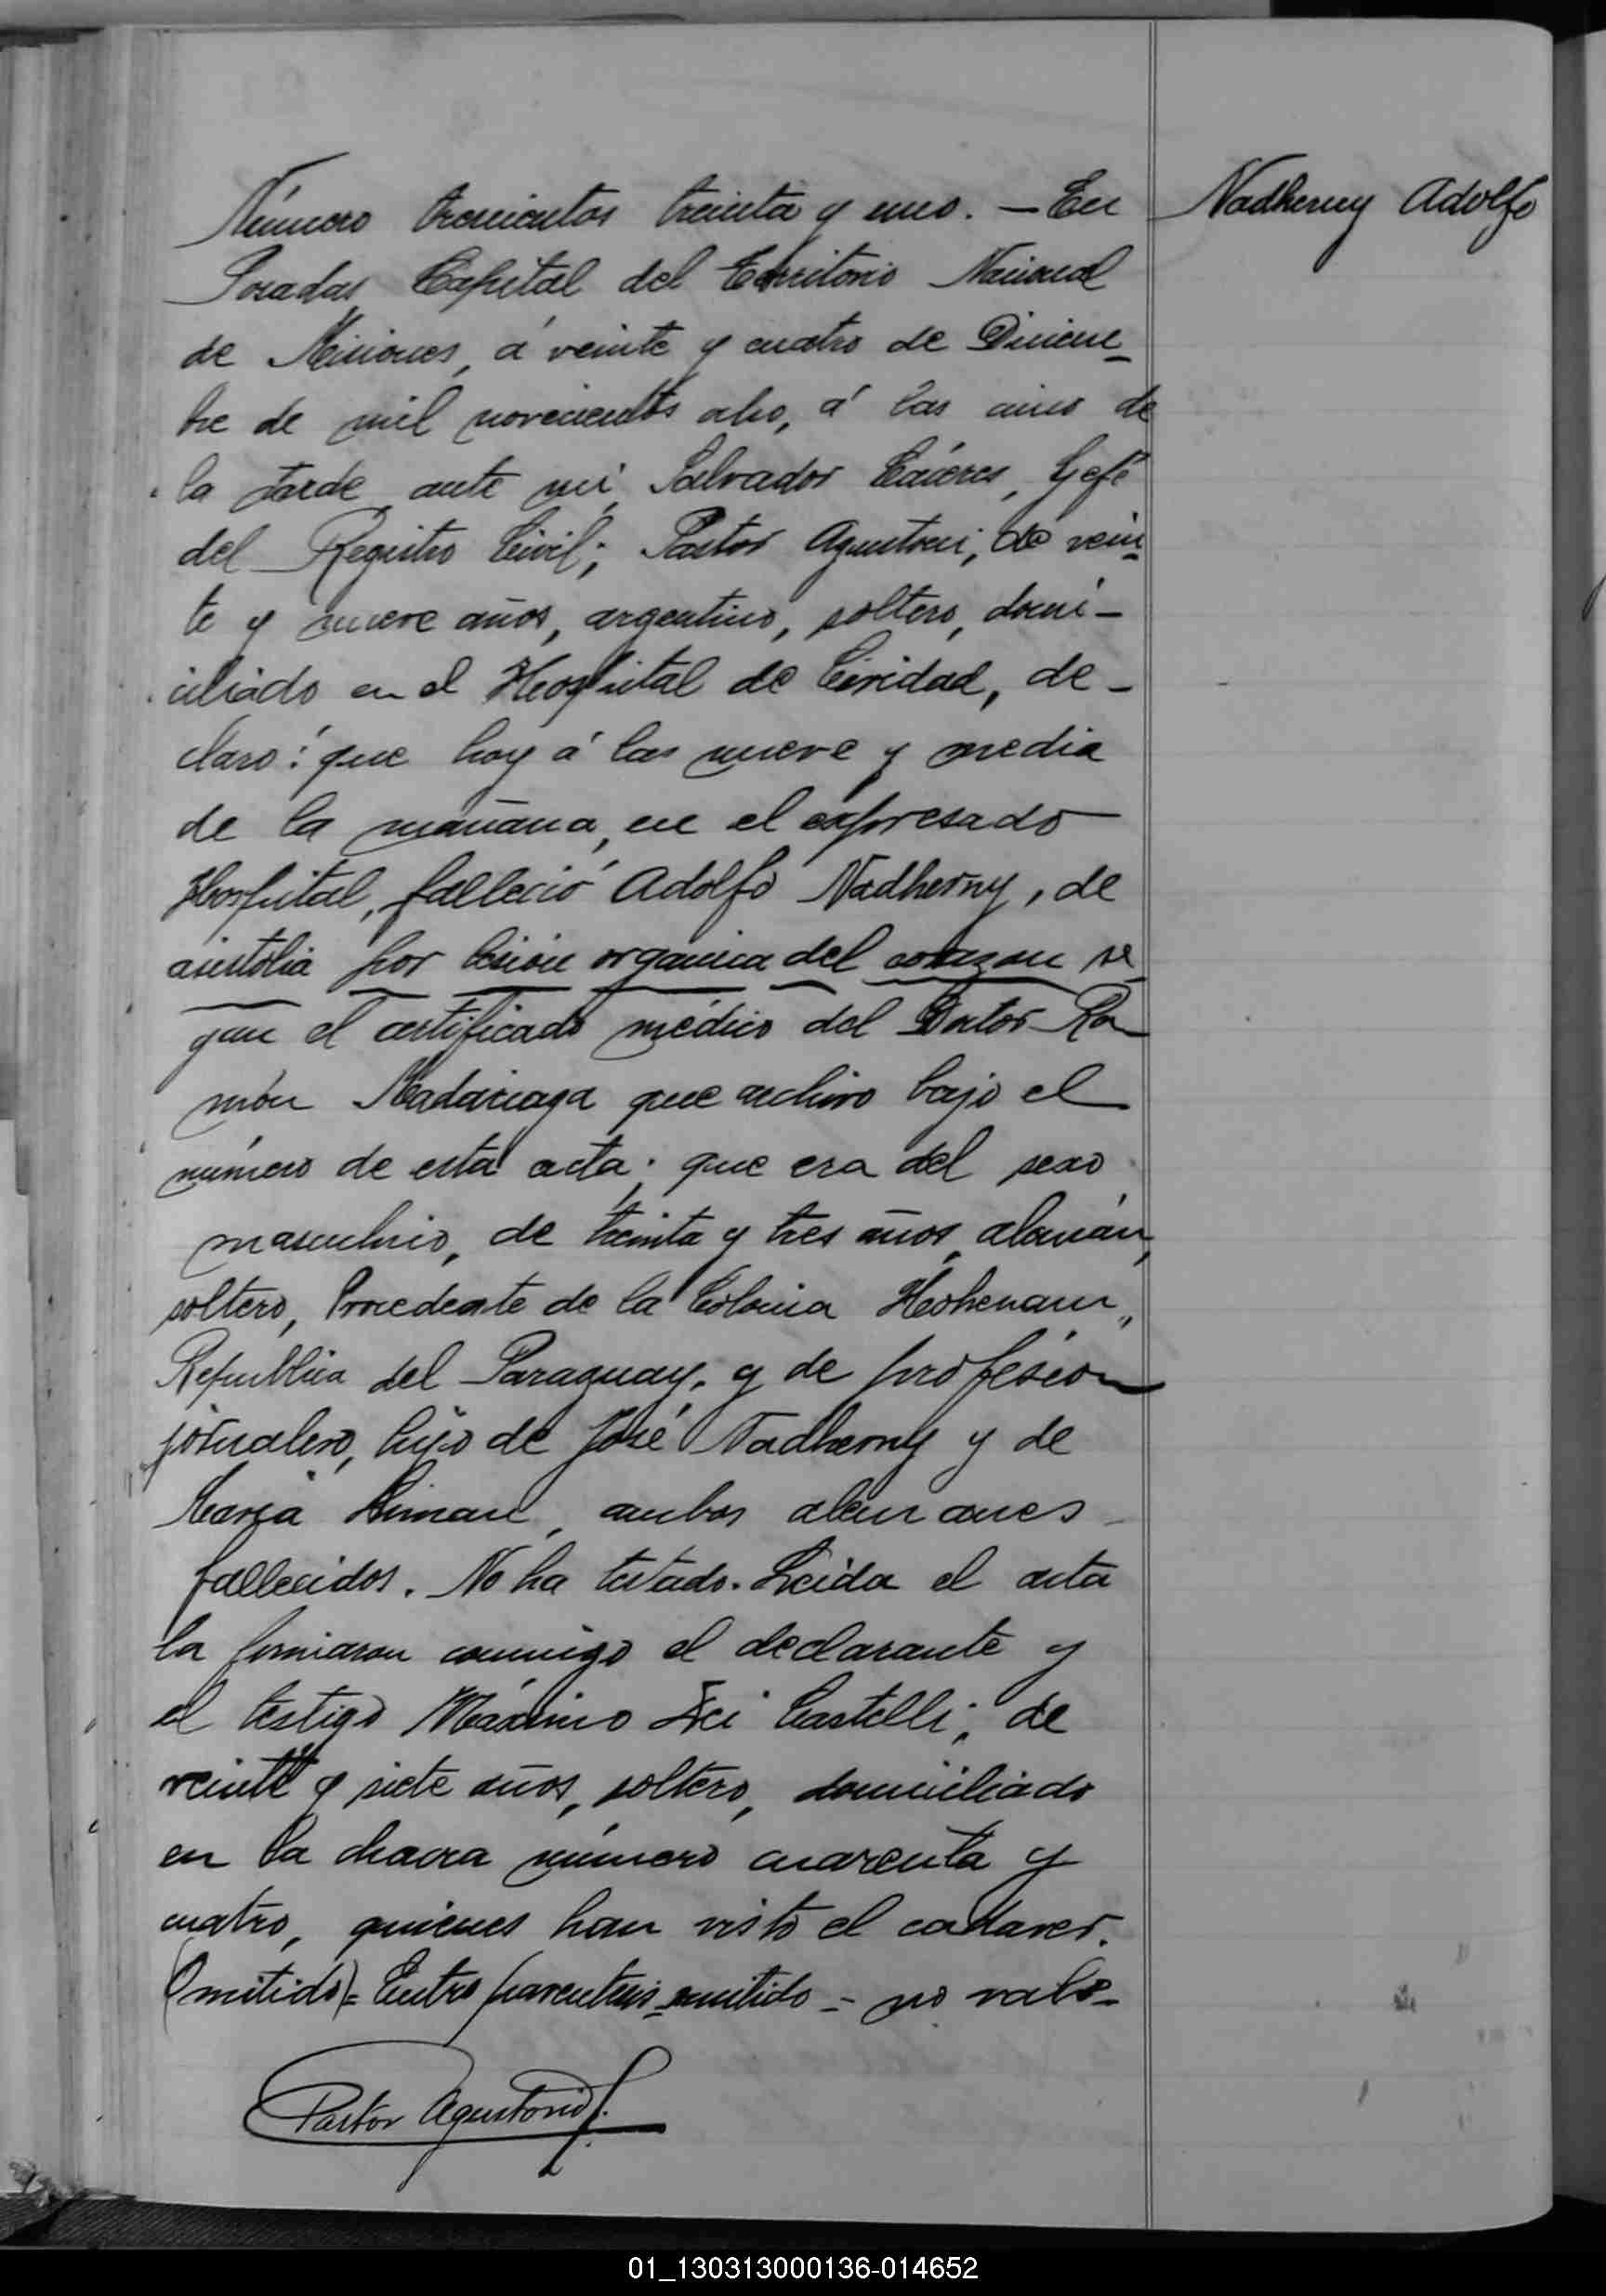 Número trescientos treinta y uno. — En
Nadherny Adolfo
Posadas Capital del Territorio Nacional
de Misiones, á veinte y cuatro de Diciem-
bre de mil novecientos ocho, á las cinco de
la tarde ante mi Salvador Cáceres, Gefe
del Registro Civil; Pastor Agustoni, de vein-
te y nueve años, argentino, soltero, domi-
ciliado en el Hospital de Caridad, de-
claro: que hoy á las nueve y media
de la mañana, en el expresado
Hospital, falleció Adolfo Nadherny, de
asistolia por lesión organica del corazon se
gun el certificado médico del Doctor Ra
món Madariaga que archivo bajo el
número de esta acta; que era del sexo
masculino, de treinta y tres años, alemán,
soltero, Procedente de la Colonia Hohenau,
Republica del Paraguay, y de profesion
jornalero, hijo de José Nadherny y de
Maria, ambos alemanes
fallecidos. No ha testado. Leida el acta
la firmaron conmigo el declarante y
el testigo Máximo Dei Castelli; de
veinte y siete años, soltero, domiciliado
en la chacra número cuarenta y
cuatro, quienes han visto el cadaver.
(Omitido) = Entre parentesis omitido - no vale -
Pastor Agustoni
01_130313000136-014652